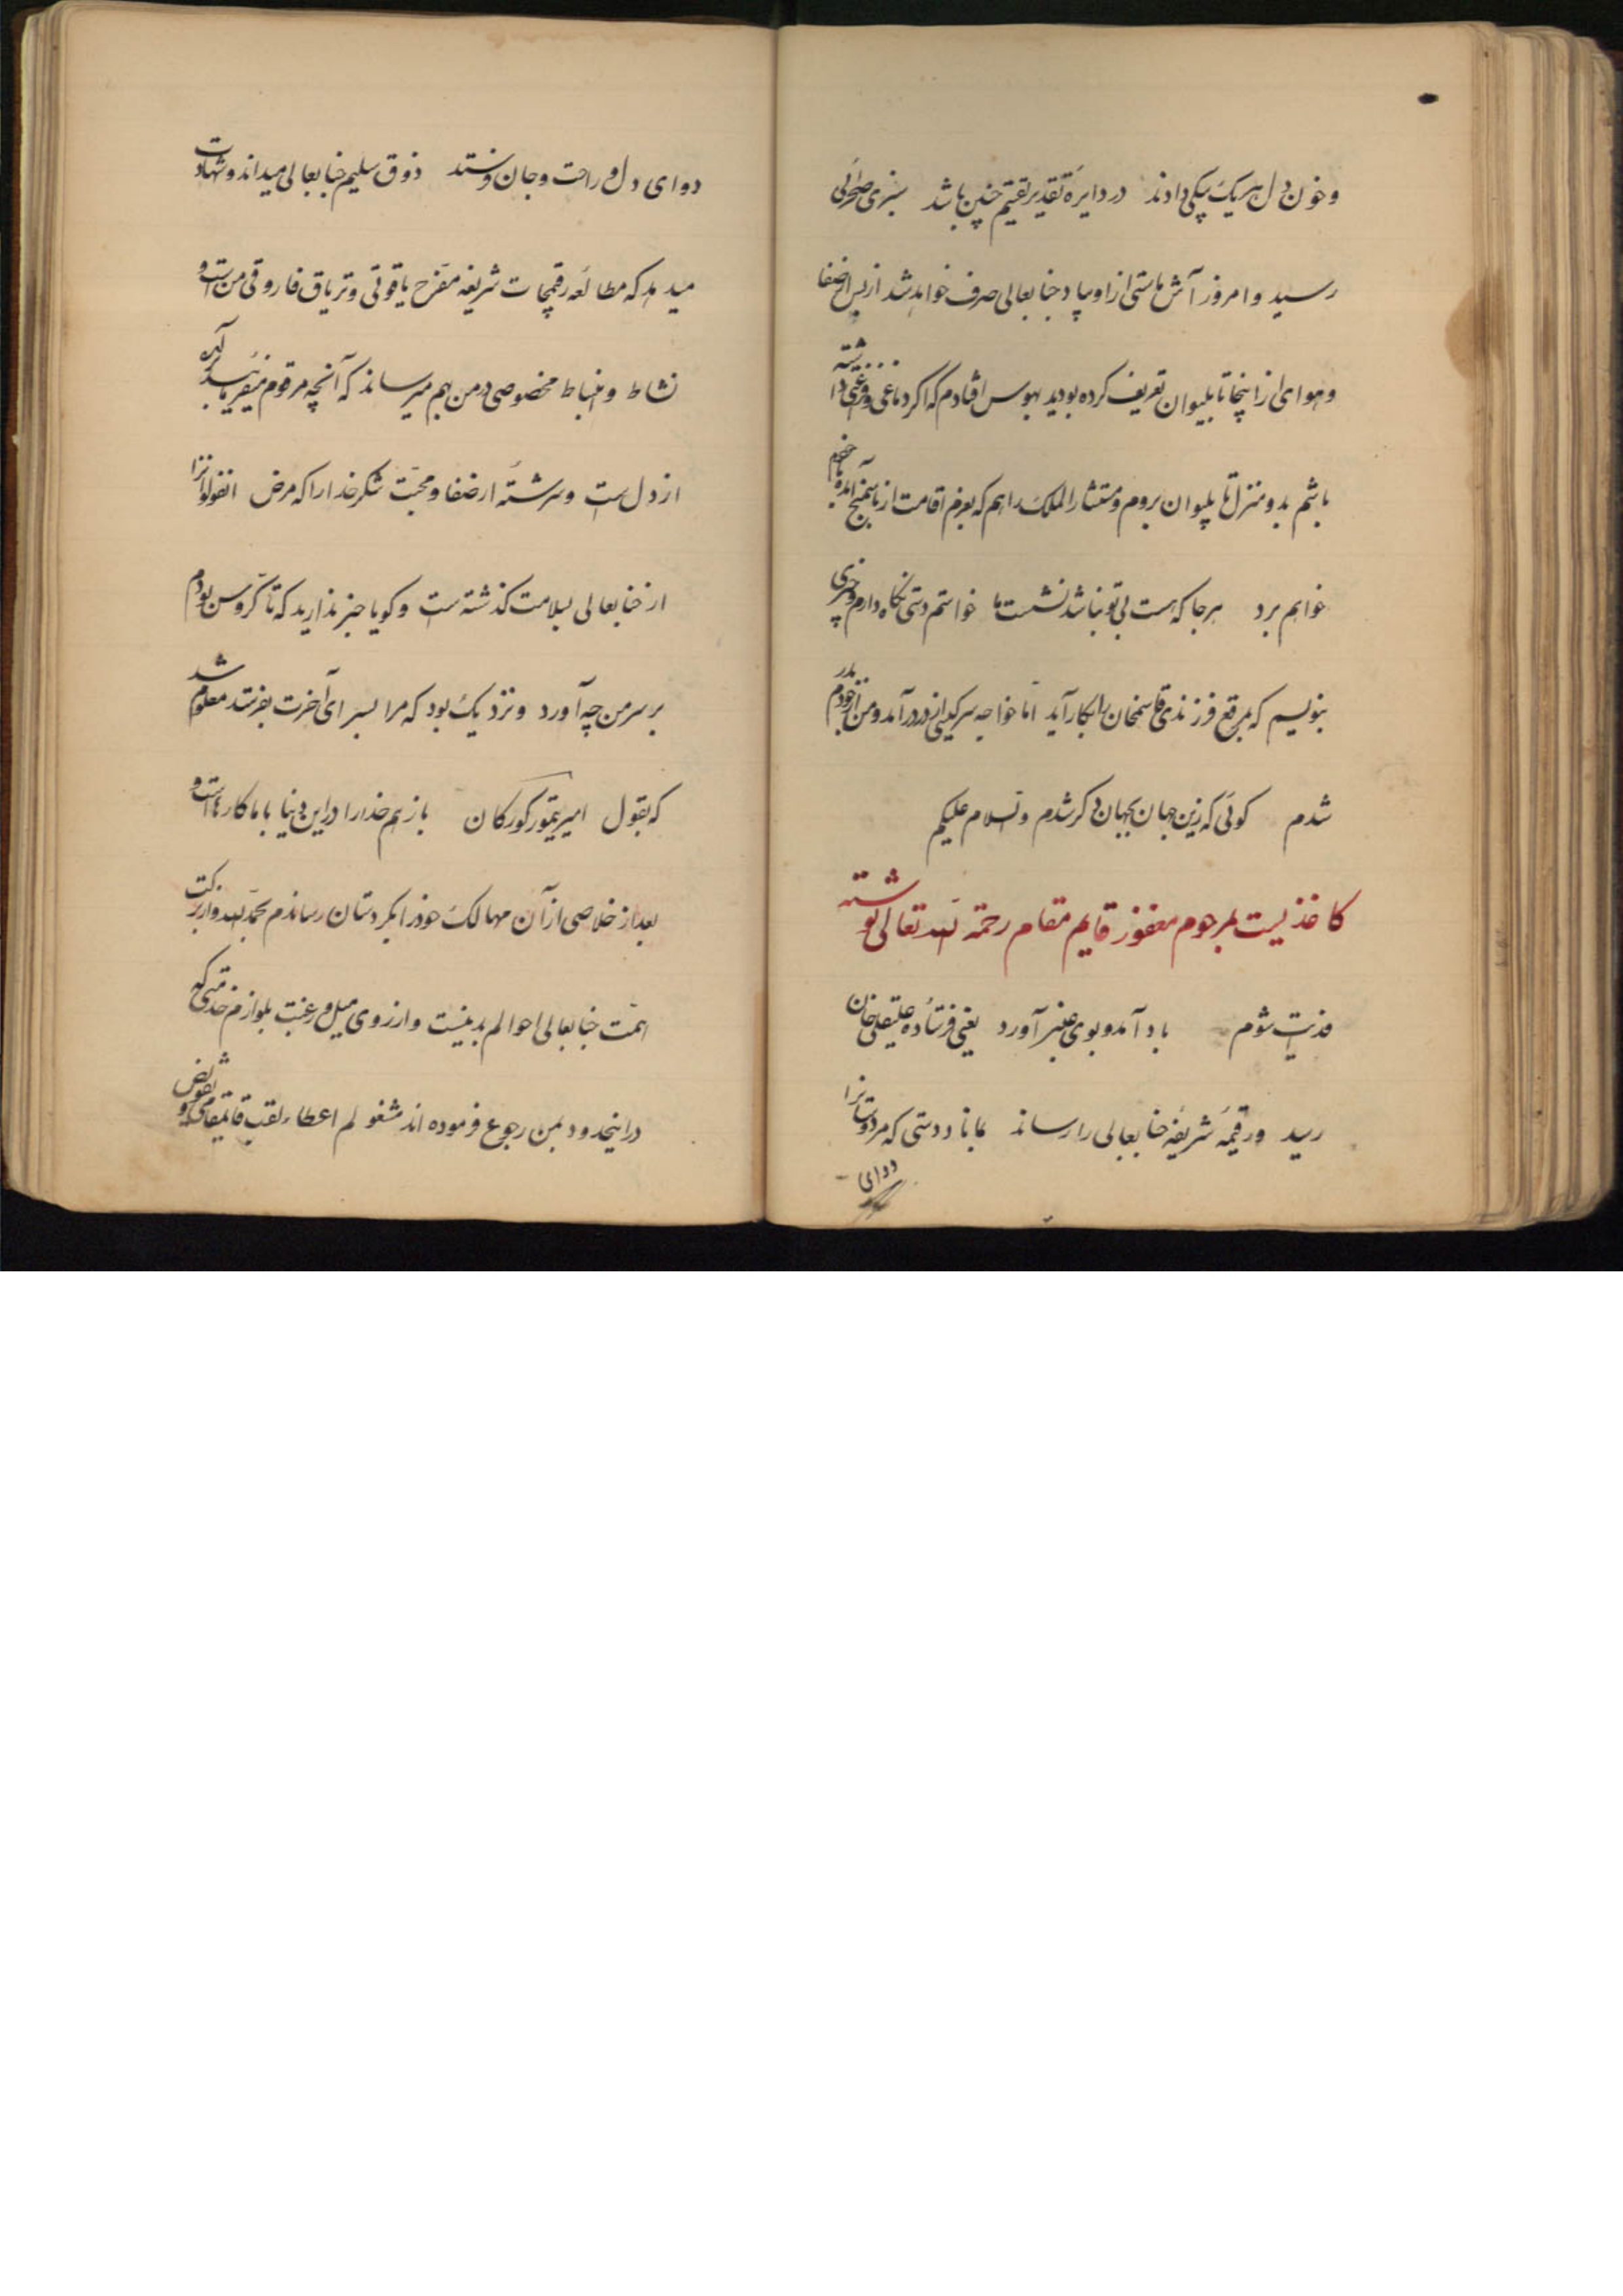 و خون دل بهر یک پیکی دادند در دایرهٔ تقدیر تقسیم چنین باشد سبزی صحرائی
رسید و امروز آش ماستی از او بیاد جنابعالی صرف خواهد شد از بس از صفا
و هوای از اینجا تا پلیوان تعریف کرده بودید بهوس افتادم که اگر دماغی و رغبتی داشته
باشم بدو منزل تا پلیوان بروم و مستشار الملک را هم که بعزم اقامت از آمده خواهم
خواهم برد هر جا که هست بی تو نباشد نشست ما خواستم دستی نگاه دارم و چیزی
بنویسم که بمرقع فرزندی قاسمخان بکار آید اما خواجه سرکیس از در درآمد و من از خود بدر
شدم گوئی که زین جهان بجهان دگر شدم والسلام علیکم
کاغذیست بمرحوم مغفور قایم مقام رحمة الله تعالی نوشته
فدیت شوم باد آمد و بوی عنبر آورد یعنی فرستاده علیقلی خان
رسید و رقیمه شریفه جنابعالی را رساند بمانا دستی که مر دوستانرا
دوای
دوای دل و راحت و جان فرستد ذوق سلیم جنابعالی میداند و شهادت
میدهد که مطالعه رقیمجات شریفه مفرح یاقوتی و تریاق فاروقی من است و
نشاط و انبساط مخصوصی در من بهم میرساند که آنچه مرقوم میفرمایید
از دل است و سرشته از صفا و محبت شکر خدا را که مرض انفلوانزا
از جنابعالی بسلامت گذشته است و گویا خبر ندارید که تا گروس بودم
بر سر من چه آورد و نزدیک بود که مرا بسرای آخرت بفرستد معلوم شد
که بقول امیر تیمور گورکان باز هم خدا را در این دنیا با ما کارها است و
بعد از خلاصی از آن مهالک خود را بکردستان رساندم بحمد الله و از برکت
همت جنابعالی احوالم بد نیست و از روی میل و رغبت بلوازم خدمتی که
در اینحدود بمن رجوع فرموده اند مشغولم اعطاء لقب قائمقامی و تفویض